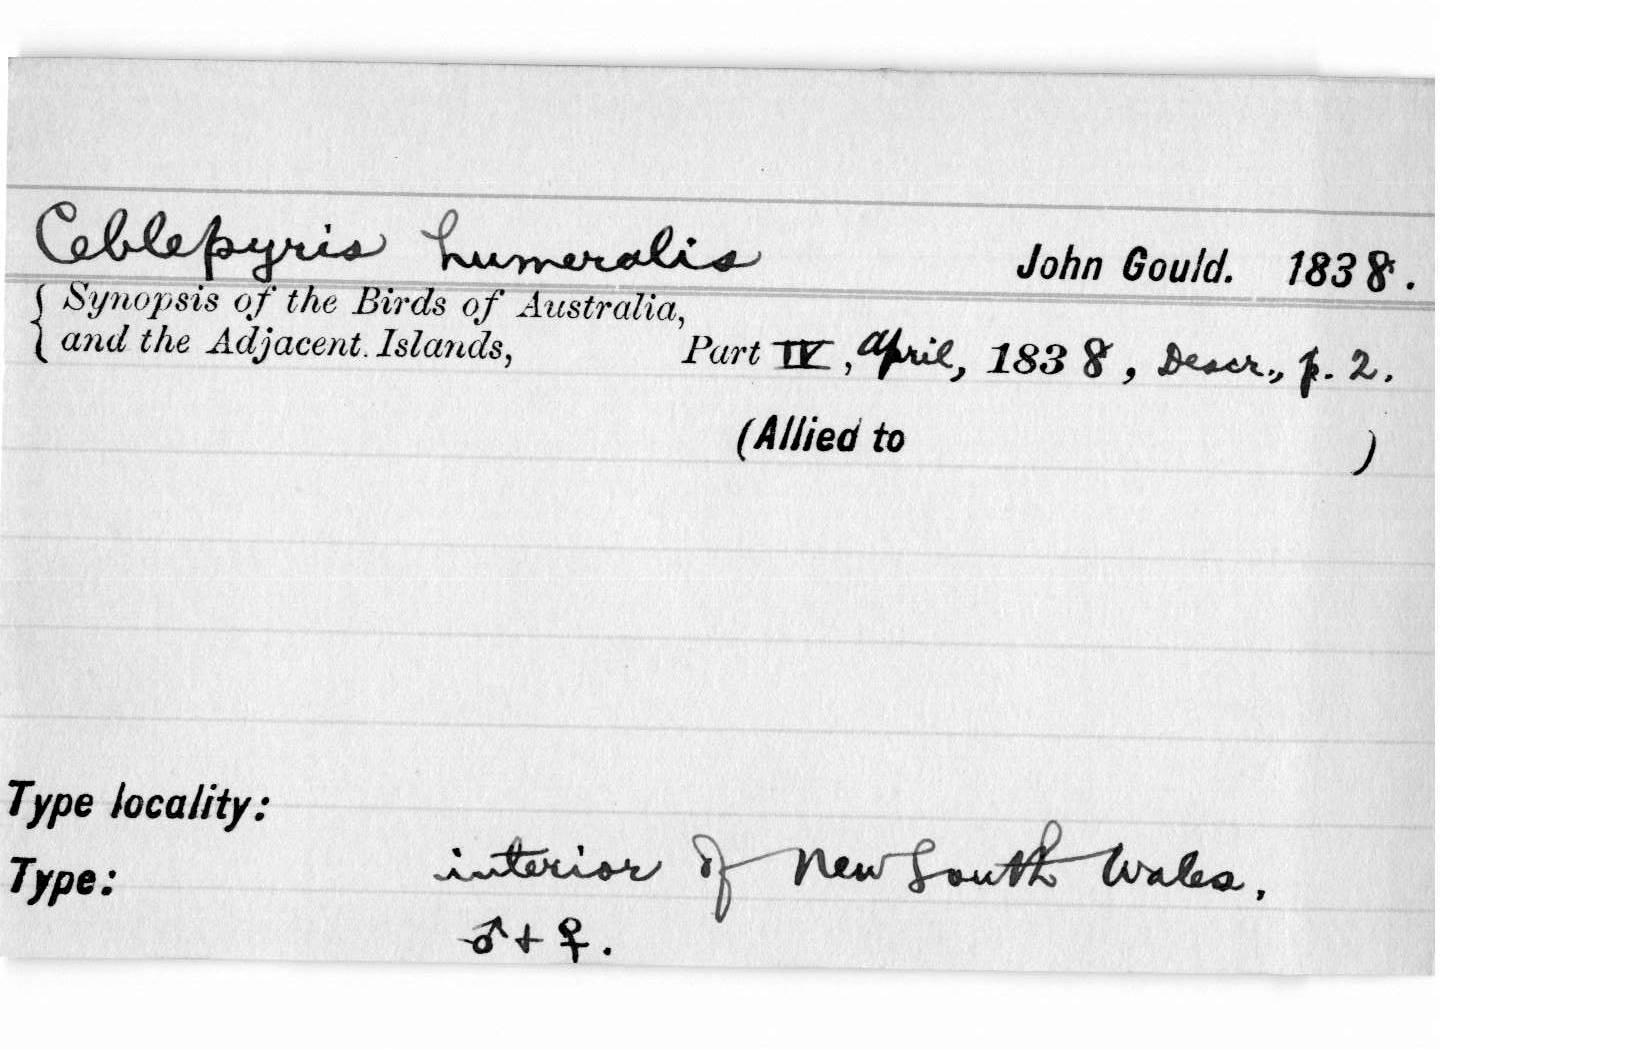 Ceblepyris humeralis John Gould. 1838.
{ Synopsis of the Birds of Australia,
and the Adjacent Islands, Part IV, April, 1838, Descr., p. 2.
(Allied to )
Type locality:
Type: interior of New South Wales.
♂ + ♀.